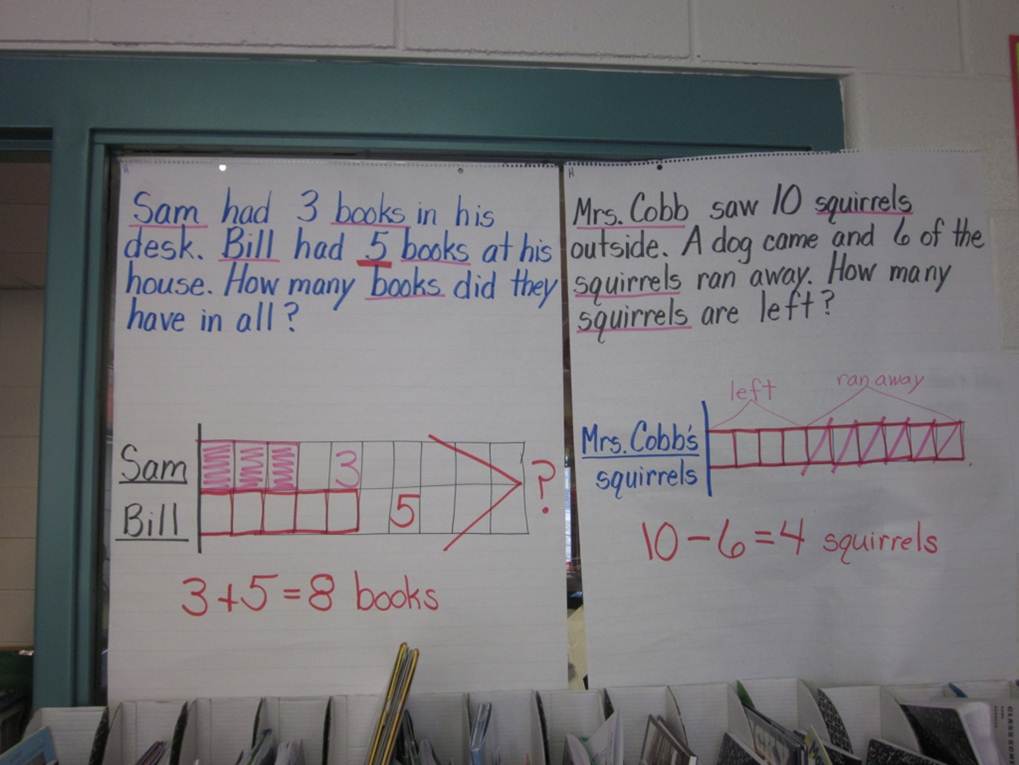 Sam had 3 books in his
desk. Bill had 5 books at his
house. How many books did they
have in all?
Sam 3
Bill 5
?
3+5=8 books
Mrs. Cobb saw 10 squirrels
outside. A dog came and 6 of the
squirrels ran away. How many
squirrels are left?
left ran away
Mrs. Cobb's
squirrels
10-6=4 squirrels